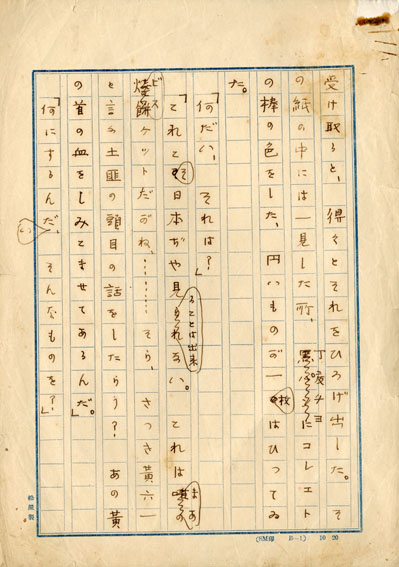 受け取ると、得々とそれをひろげ出した。そ
の紙の中には一見した所、丁度チヨコレエト
の棒の色をした、円いものが一枚はひつてゐ
た。
「何だい、それは？」
「これこそ日本ぢや見ることは出来ない。これはまあ
ビスケットだがね、………そら、さつき黄六一
と言ふ土匪の頭目の話をしたらう？ あの黄
の首の血をしみこませてあるんだ。」
「何にするんだい、そんなものを？」
(SM印 B-1) 10 20
松屋製